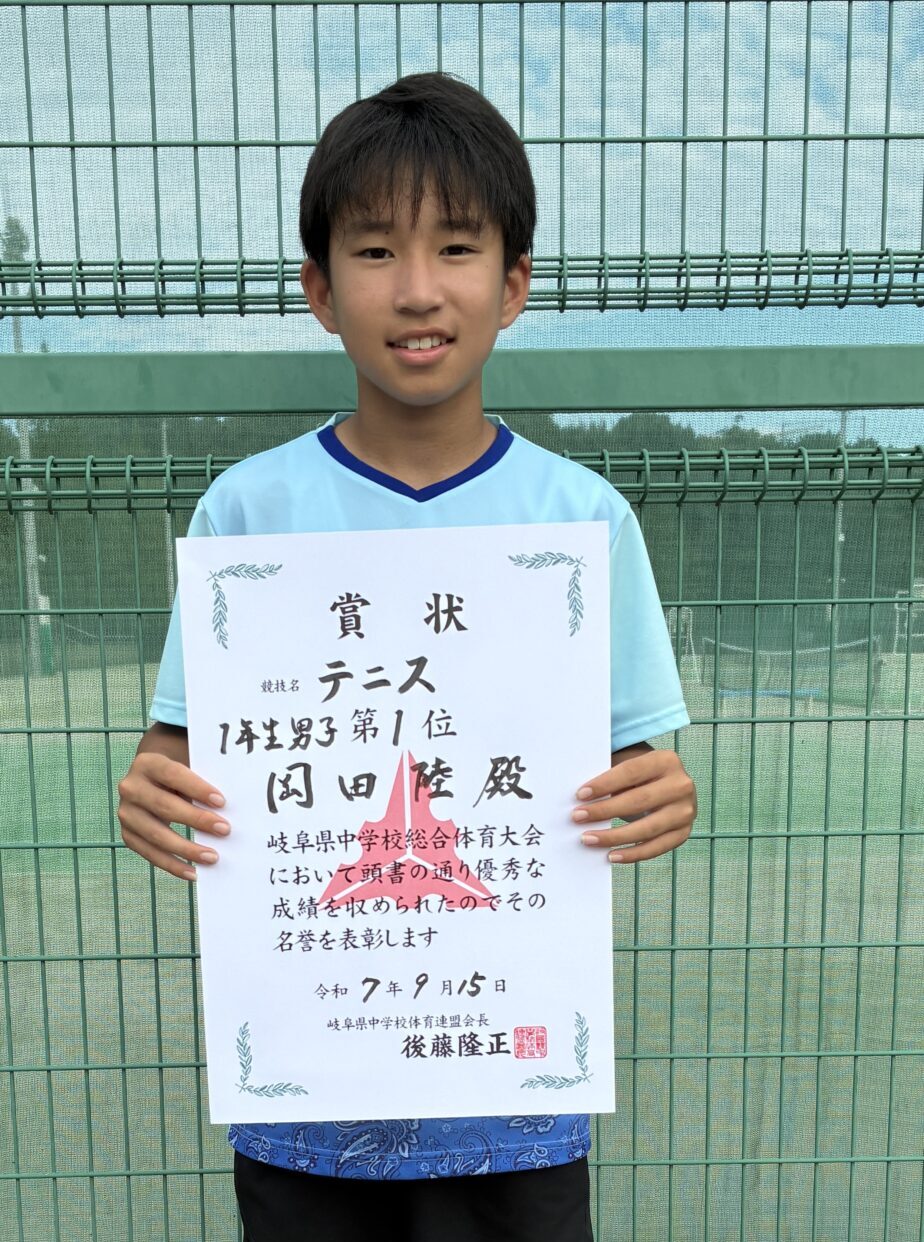 賞状
競技名 テニス
1年生男子 第1位
岡田陸殿
岐阜県中学校総合体育大会
において頭書の通り優秀な
成績を収められたのでその
名誉を表彰します
令和7年9月15日
岐阜県中学校体育連盟会長
後藤隆正